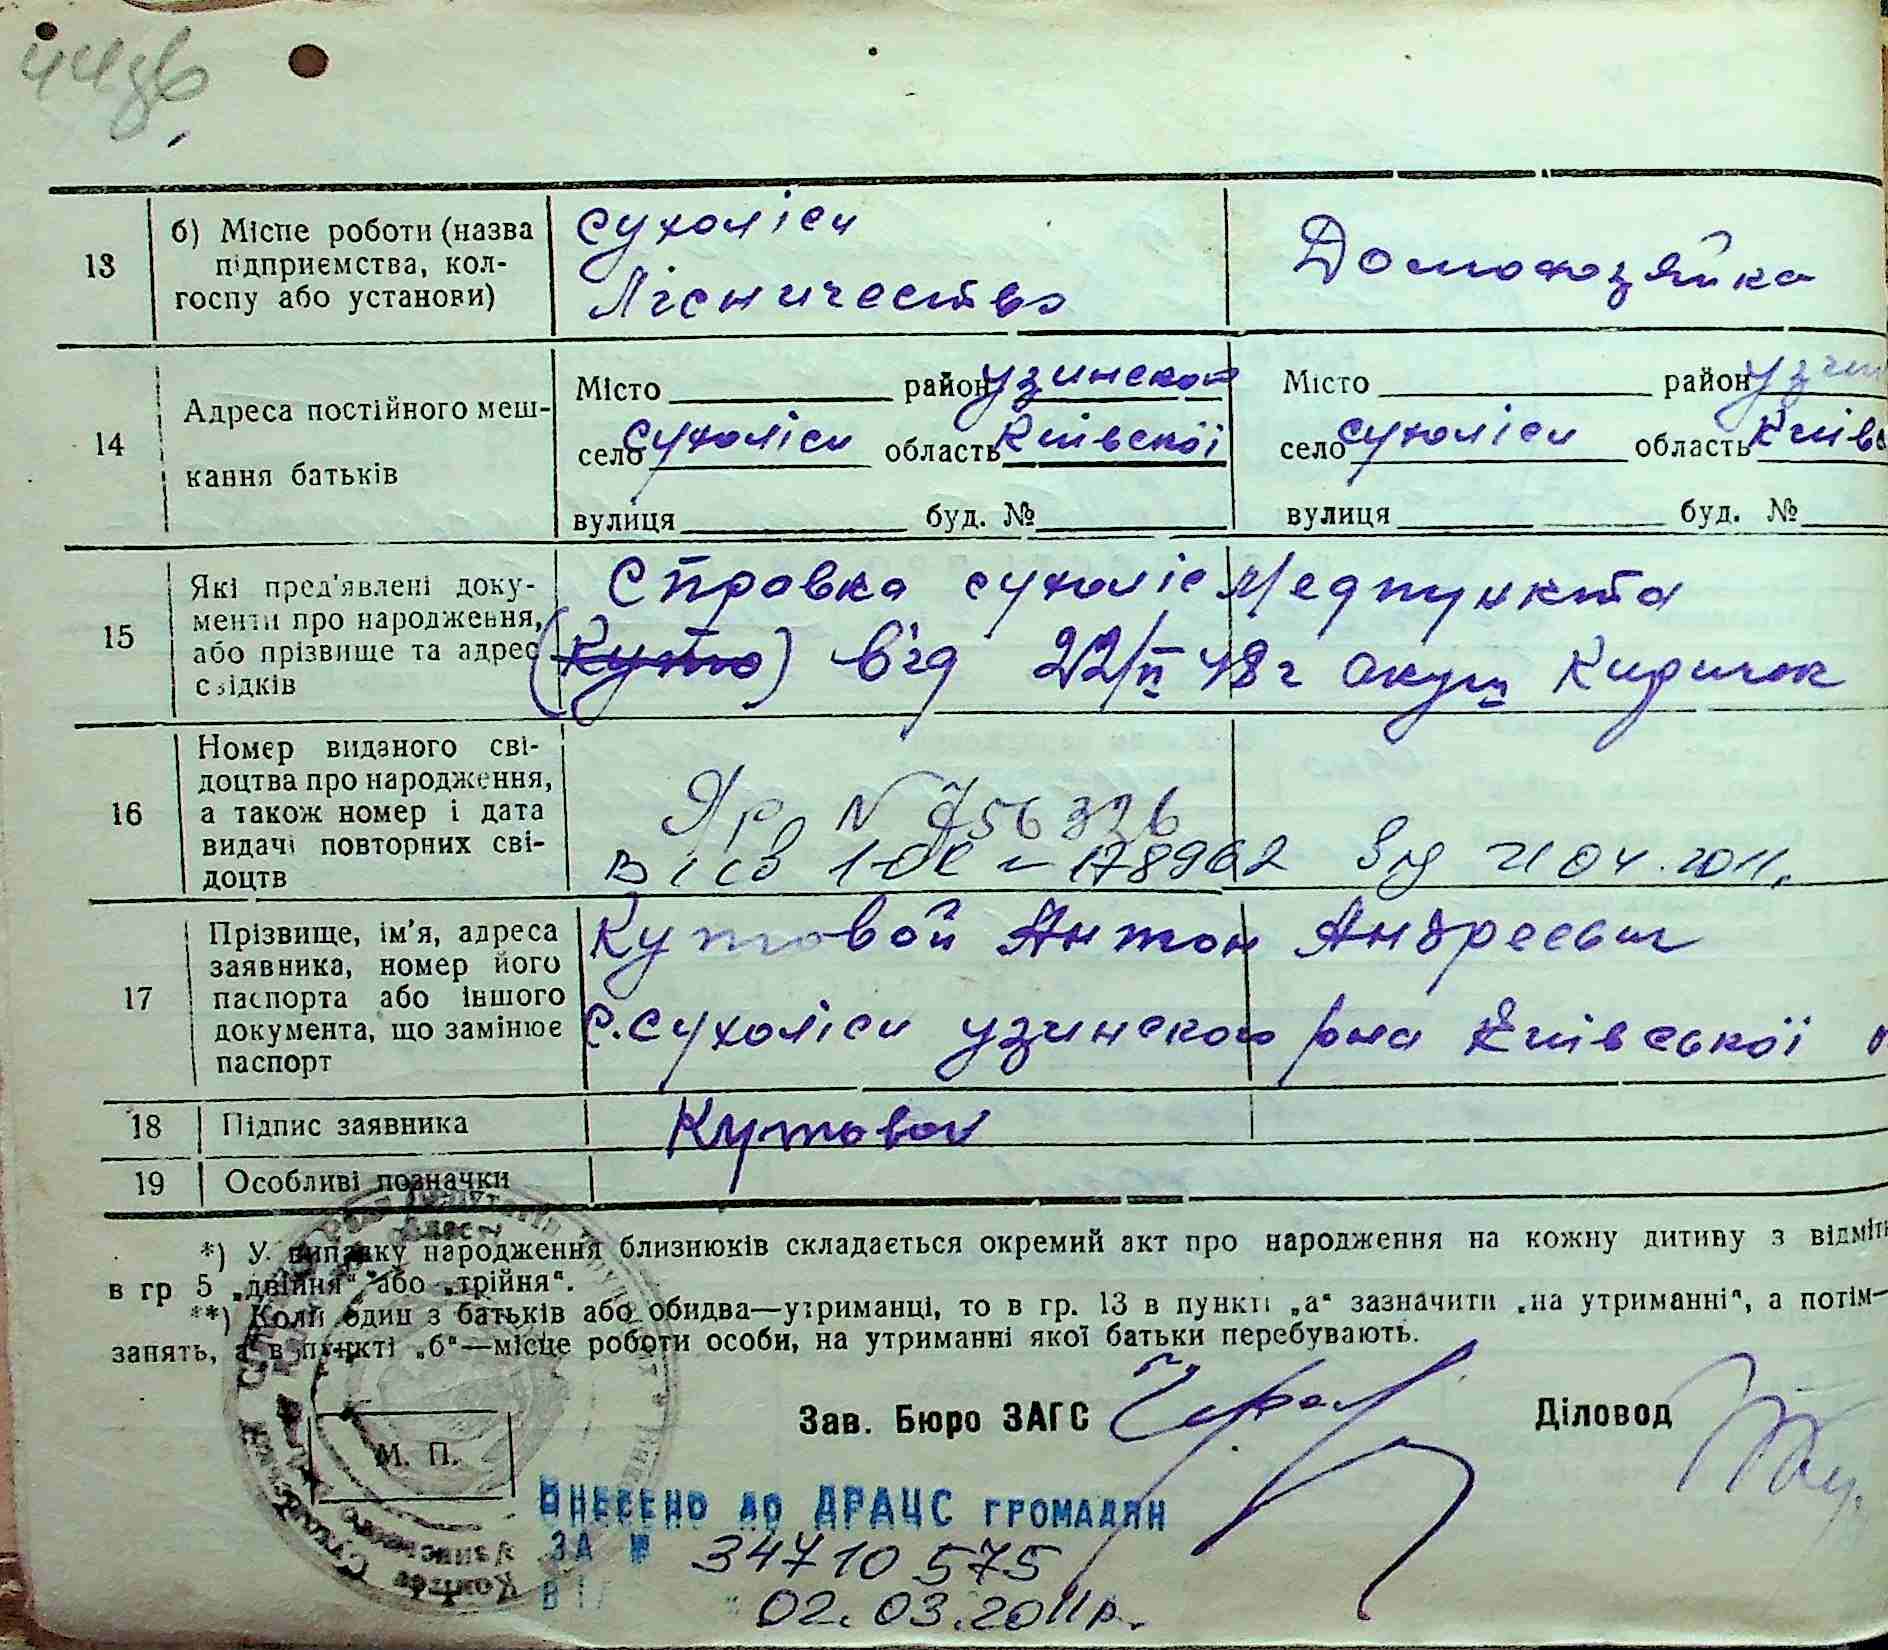 44зв
13
б) Місце роботи (назва
підприємства, кол-
госпу або установи)
Сухоліси
Лісничество
Домохозяйка
14
Адреса постійного меш-
кання батьків
Місто район Узинского
село Сухоліси область Київскої
вулиця буд. №
Місто район Узин
село Сухоліси область Київс
вулиця буд. №
15
Які пред'явлені доку-
менти про народження,
або прізвище та адрес
свідків
Справка сухоліс медпункта
(Куто) від 22/II 48 г акуш
16
Номер виданого сві-
доцтва про народження,
а також номер і дата
видачі повторних сві-
доцтв
N 756326
св 1-ОК 178962 від 21 04.2011.
17
Прізвище, ім'я, адреса
заявника, номер його
паспорта або іншого
документа, що замінює
паспорт
Кутовой Антон Андреевич
с. Сухоліси Узинского р-на Київської
18
Підпис заявника
Кутовой
19
Особливі позначки
*) У випадку народження близнюків складається окремий акт про народження на кожну дитину з відміт
в гр 5 „двійня“ або „трійня“.
**) Коли один з батьків або обидва—утриманці, то в гр. 13 в пункті „а“ зазначити „на утриманні“, а потім—
занять, а в пункті „б“—місце роботи особи, на утриманні якої батьки перебувають.
Зав. Бюро ЗАГС
Діловод
М. П.
ВНЕСЕНО ДО ДРАЦС ГРОМАДЯН
ЗА № 34710575
ВІД 02.03.2011р.